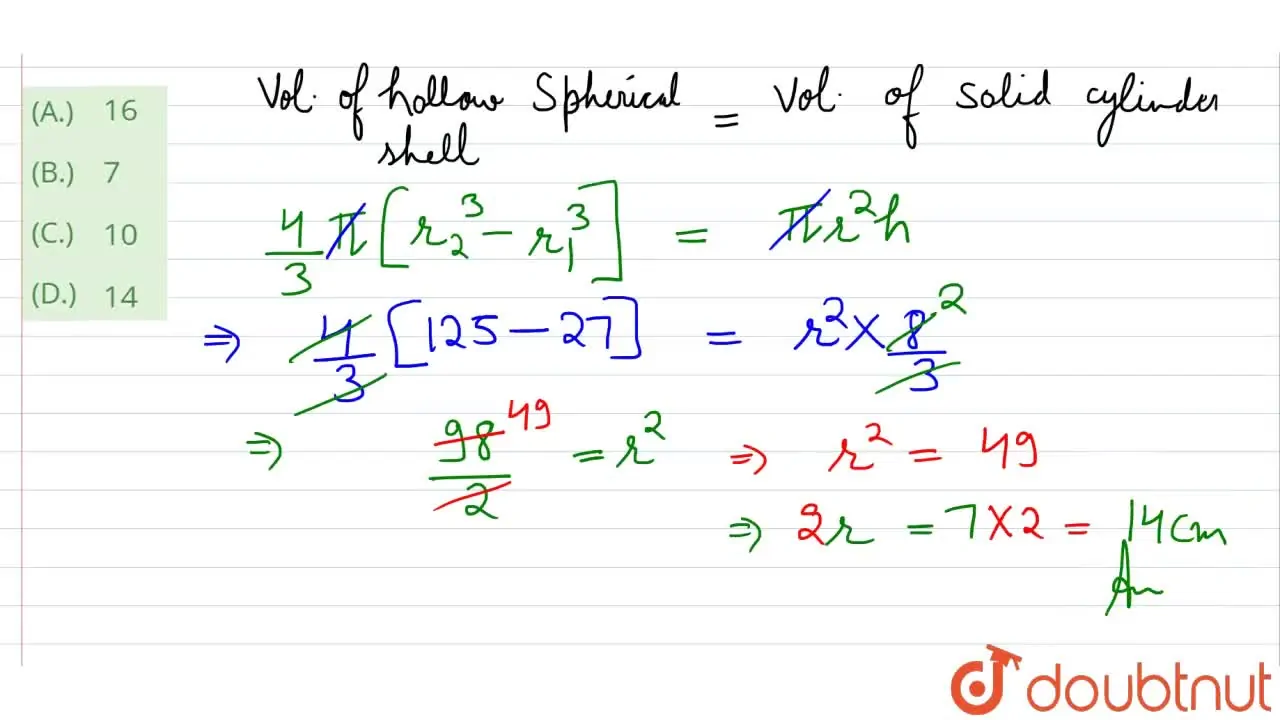 (A.) 16
(B.) 7
(C.) 10
(D.) 14
Vol. of hollow Spherical shell = Vol. of solid cylinder
4/3 π [r₂³ − r₁³] = πr²h
⇒ 4/3 [125 − 27] = r² × 8/3 2
⇒ 98/2 49 = r² ⇒ r² = 49
⇒ 2r = 7 × 2 = 14 cm
An
doubtnut